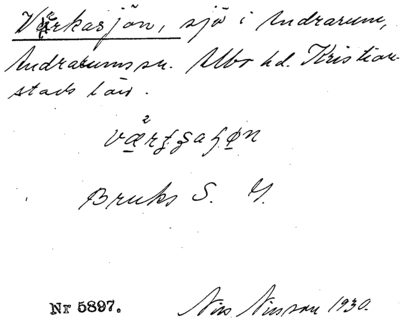 Värkasjön, sjö i Andrarum,
Andrarums sn. Albo hd. Kristian-
stads län.
Bruks S. Y.
Nr 5897. Nils Nilsson 1930.